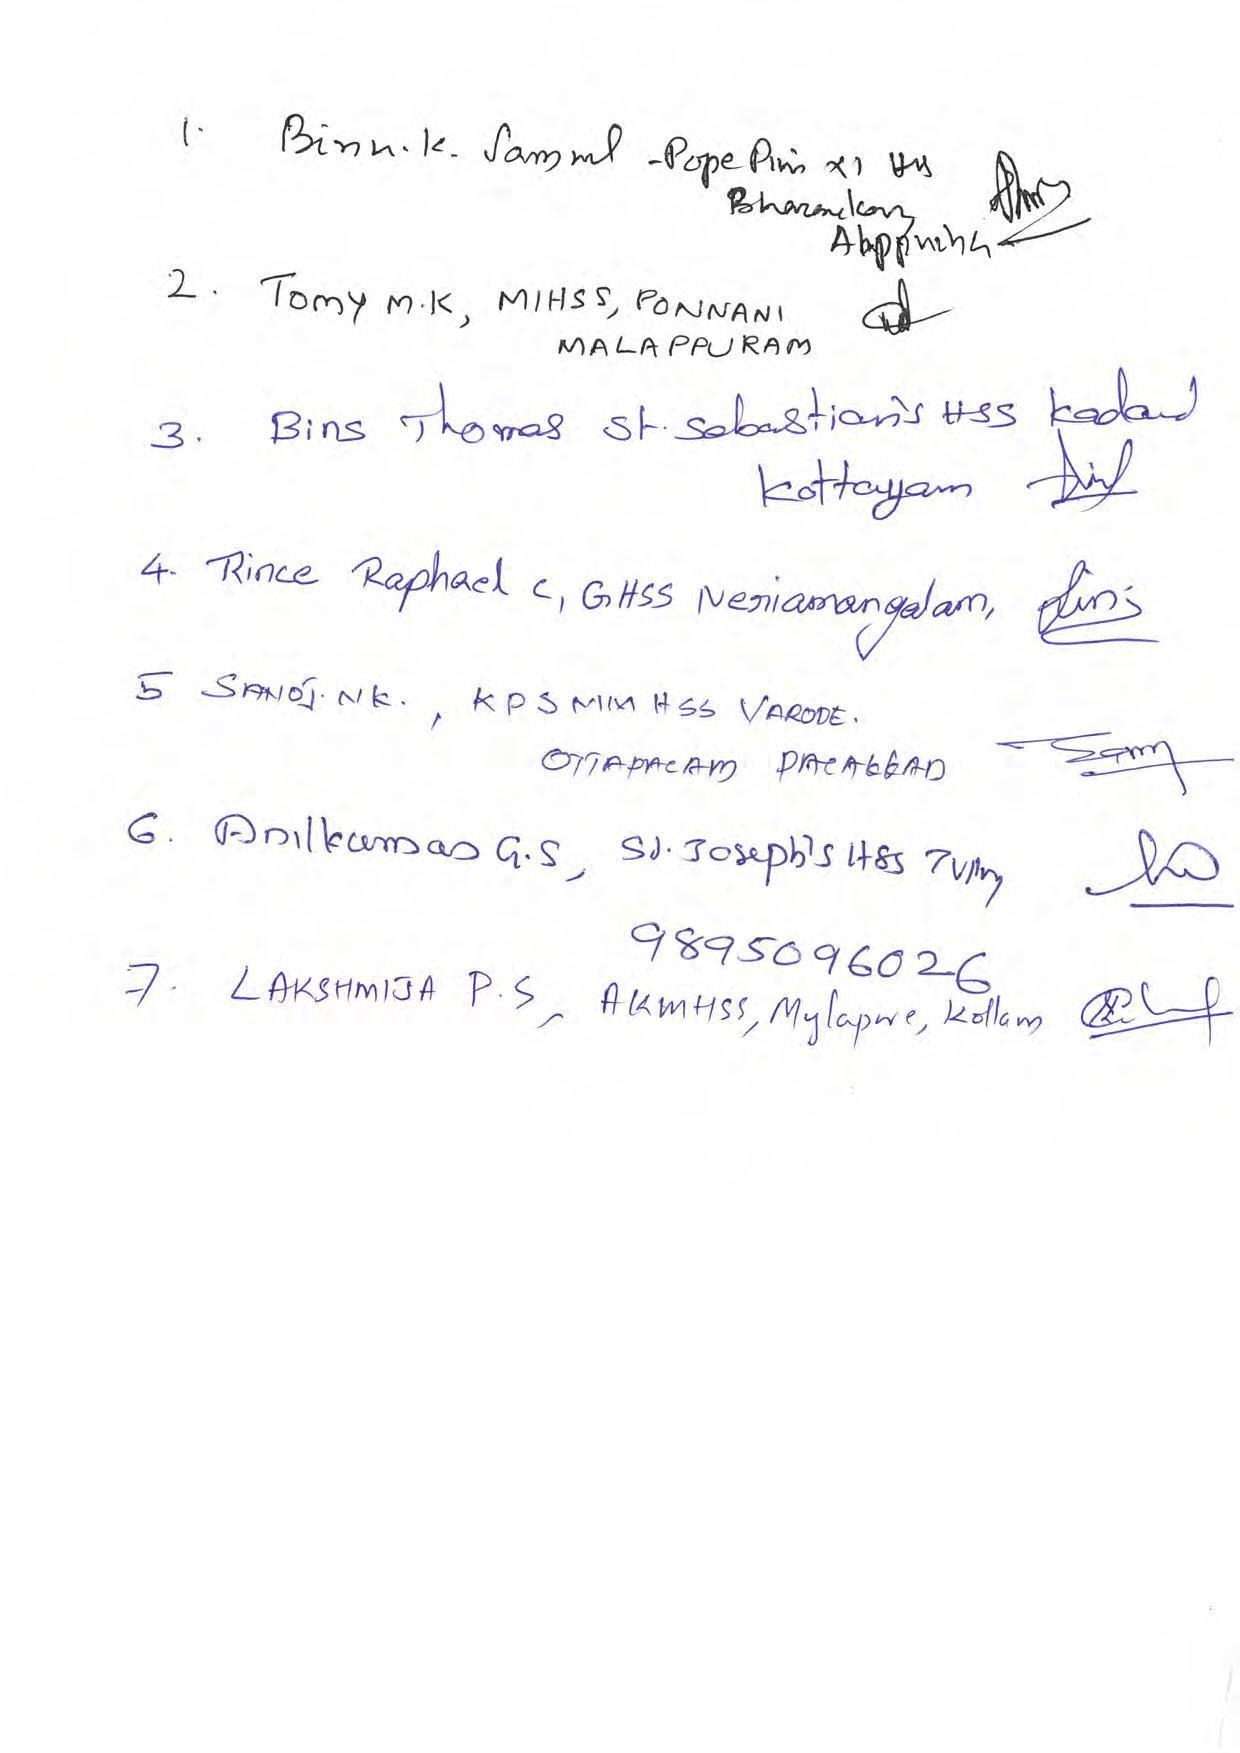 1. Binu.K. Samuel - Pope Pius XI HSS
Bharanikavu
Alappuzha
2. Tomy M.K, MIHSS, PONNANI
MALAPPURAM
3. Bins Thomas St. Sebastian's HSS Kadanad
Kottayam
4. Rince Raphael C, GHSS Neriamangalam,
5 SANOJ. NK., KPSMM HSS VARODE.
OTTAPALAM PALAKKAD
6. Anilkumar G.S, St. Joseph's HSS TVPM
9895096026
7. LAKSHMIJA P.S, AKMHSS, Mylapore, Kollam